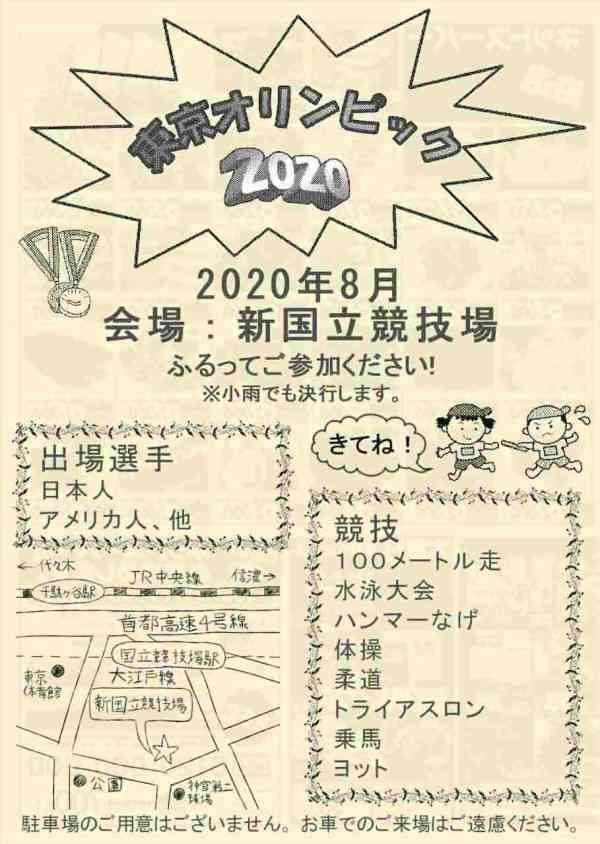 東京オリンピック
2020
2020年8月
会場：新国立競技場
ふるってご参加ください!
※小雨でも決行します。
きてね！
出場選手
日本人
アメリカ人、他
競技
100メートル走
水泳大会
ハンマーなげ
体操
柔道
トライアスロン
乗馬
ヨット
←代々木
JR中央線
信濃→
千駄ヶ谷駅
首都高速4号線
国立競技場駅
大江戸線
東京
体育館
新国立競技場
公園
神宮第二
球場
駐車場のご用意はございません。お車でのご来場はご遠慮ください。